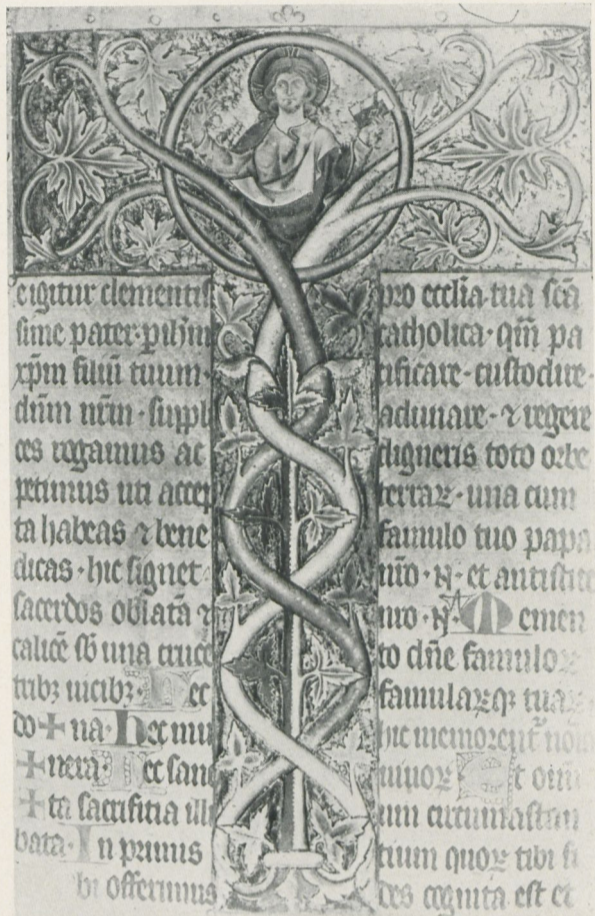 eigitur clementis
sime pater · p ihm
xpm filiū tuum ·
dūm nrm · suppli
ces rogamus ac
petimus uti accep
ta habeas ⁊ bene
dicas · hic signet
sacerdos oblatā ⁊
calicē sb una cruce
tribꝫ uicibꝫ · Hec
do + na · Hec mu
+ nera · Hec sanc
+ ta sacrifitia illi
bata · In primis
bi offerimus
pro ecclīa · tua scā
catholica · qm pa
cificare · custodire ·
adunare · ⁊ regere
digneris toto orbe
terraꝝ · una cum
famulo tuo papa
nrō · N · et antistite
nro · N · Memen
to dn̄e famuloꝝ
famulaꝝqꝫ tuaꝝ
hic memorent
uiuoꝝ Et oīm
um circumastan
tium quoꝝ tibi fi
des cognita est et